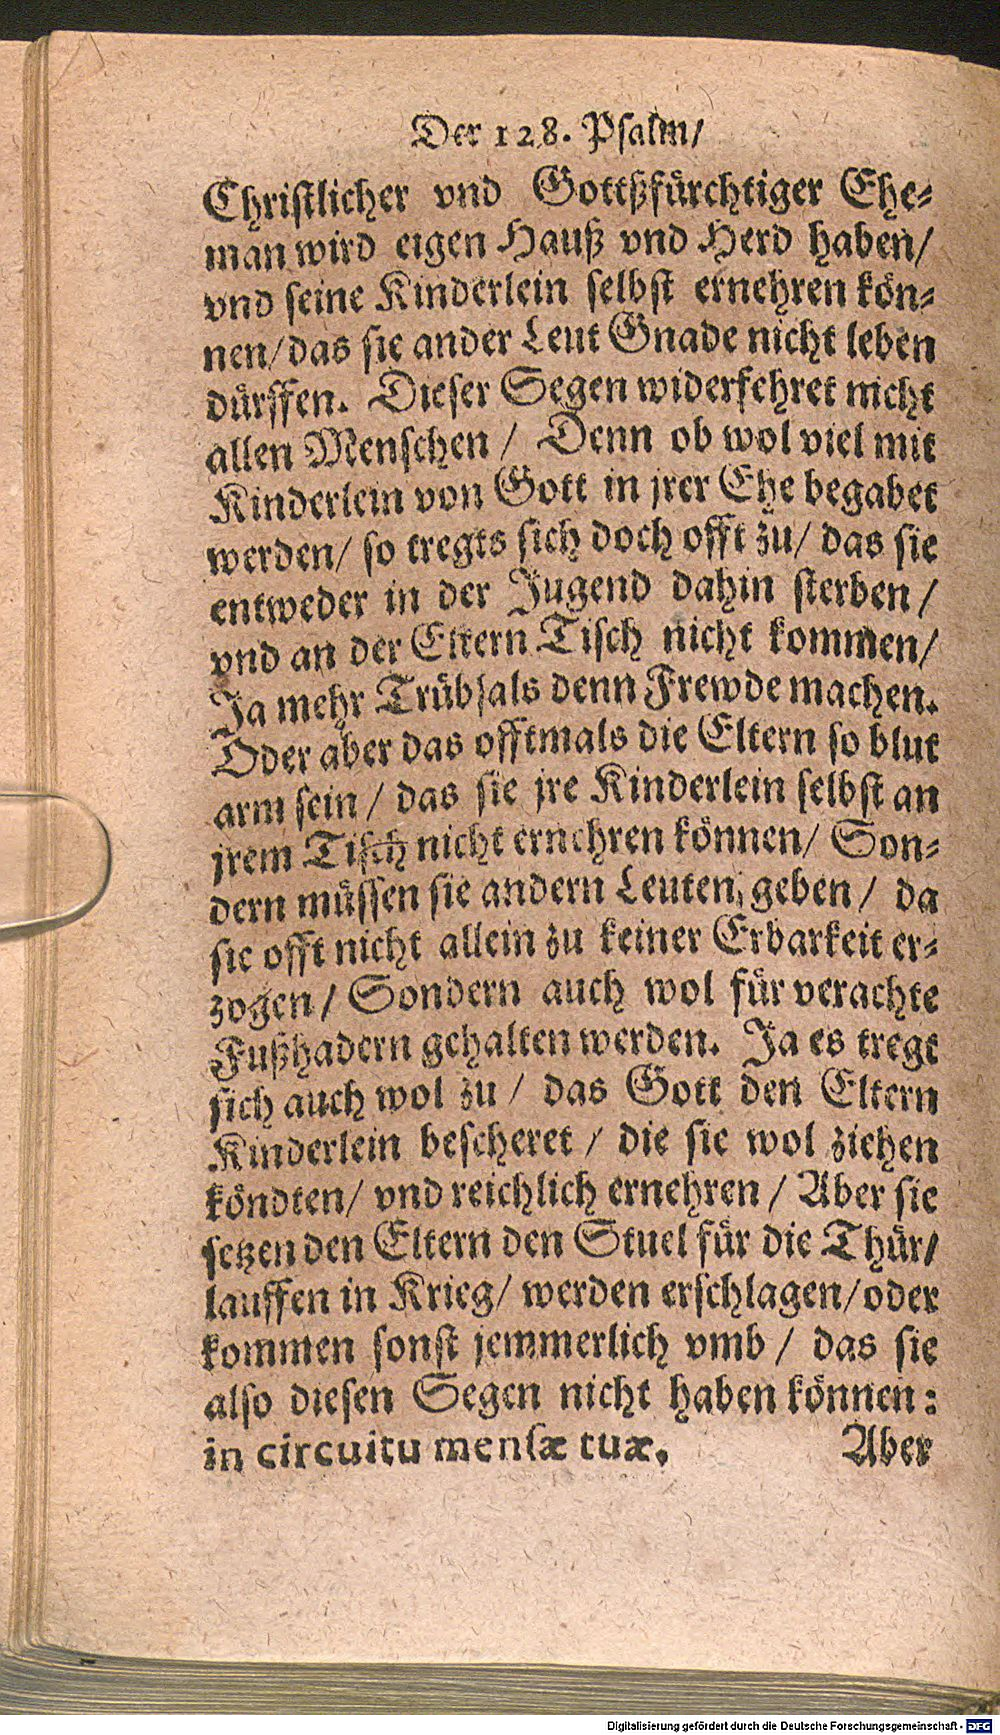 Der 128. Psalm/
Christlicher vnd Gottßfürchtiger Ehe-
man wird eigen Hauß vnd Herd haben/
vnd seine Kinderlein selbst ernehren kön-
nen/das sie ander Leut Gnade nicht leben
dürffen. Dieser Segen widerfehret nicht
allen Menschen / Denn ob wol viel mit
Kinderlein von Gott in jrer Ehe begabet
werden/ so tregts sich doch offt zu/ das sie
entweder in der Jugend dahin sterben/
vnd an der Eltern Tisch nicht kommen/
Ja mehr Trübsals denn Frewde machen.
Oder aber das offtmals die Eltern so blut
arm sein / das sie jre Kinderlein selbst an
jrem Tisch nicht ernehren können/ Son-
dern müssen sie andern Leuten, geben / da
sie offt nicht allein zu keiner Erbarkeit er-
zogen/ Sondern auch wol für verachte
Fußhadern gehalten werden. Ja es tregt
sich auch wol zu / das Gott den Eltern
Kinderlein bescheret / die sie wol ziehen
köndten/ vnd reichlich ernehren / Aber sie
setzen den Eltern den Stuel für die Thür/
lauffen in Krieg/ werden erschlagen/oder
kommen sonst jemmerlich vmb / das sie
also diesen Segen nicht haben können:
in circuitu mensæ tuæ. Aber
Digitalisierung gefördert durch die Deutsche Forschungsgemeinschaft - DFG